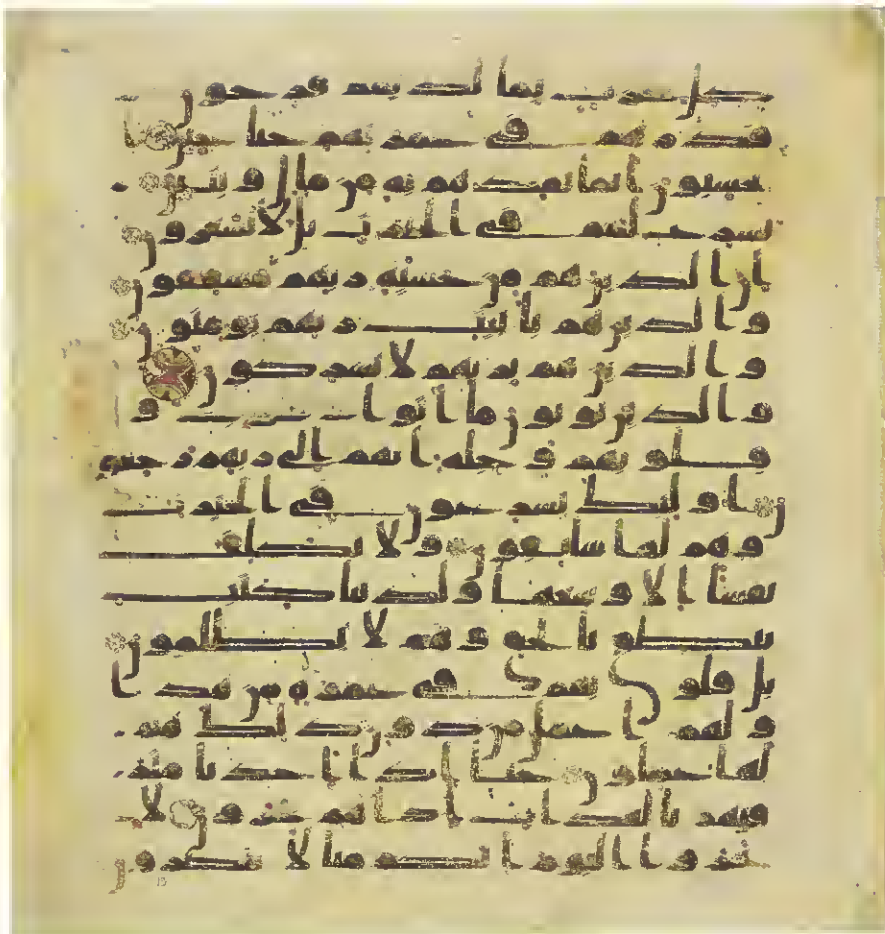 كل حزب بما لديهم فرحون
فذرهم في غمرتهم حتا حين ا
يحسبون انما نمدهم به من مال وبنين
نسرع لهم في الخيرت بل لا يشعرون
ان الذين هم من خشية ربهم مشفقون
والذين هم بايت ربهم يومنون
والذين هم بربهم لا يشركون
والذين يوتون ما اتوا و
قلوبهم وجلة انهم الى ربهم رجعو
ن اولئك يسرعون في الخيرت
وهم لها سابقون ولا نكلف
نفسا الا وسعها ولدينا كتب
ينطق بالحق وهم لا يظلمون
بل قلوبهم في غمرة من هذا
ولهم اعمل من دون ذلك هم
لها عملون حتا اذا اخذنا متر
فيهم بالعذاب اذا هم يجرون لا
تجروا اليوم انكم منا لا تنصرون